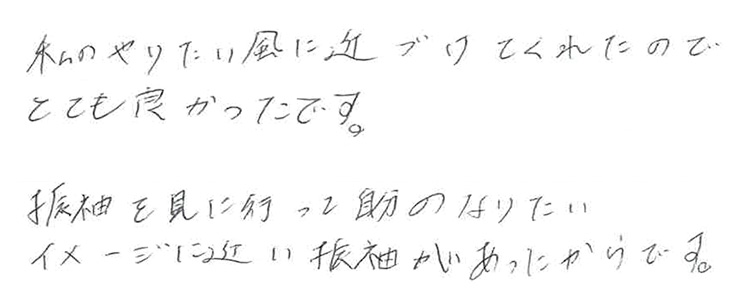 私のやりたい風に近づけてくれたので
とても良かったです。
振袖を見に行って自分のなりたい
イメージに近い振袖があったからです。